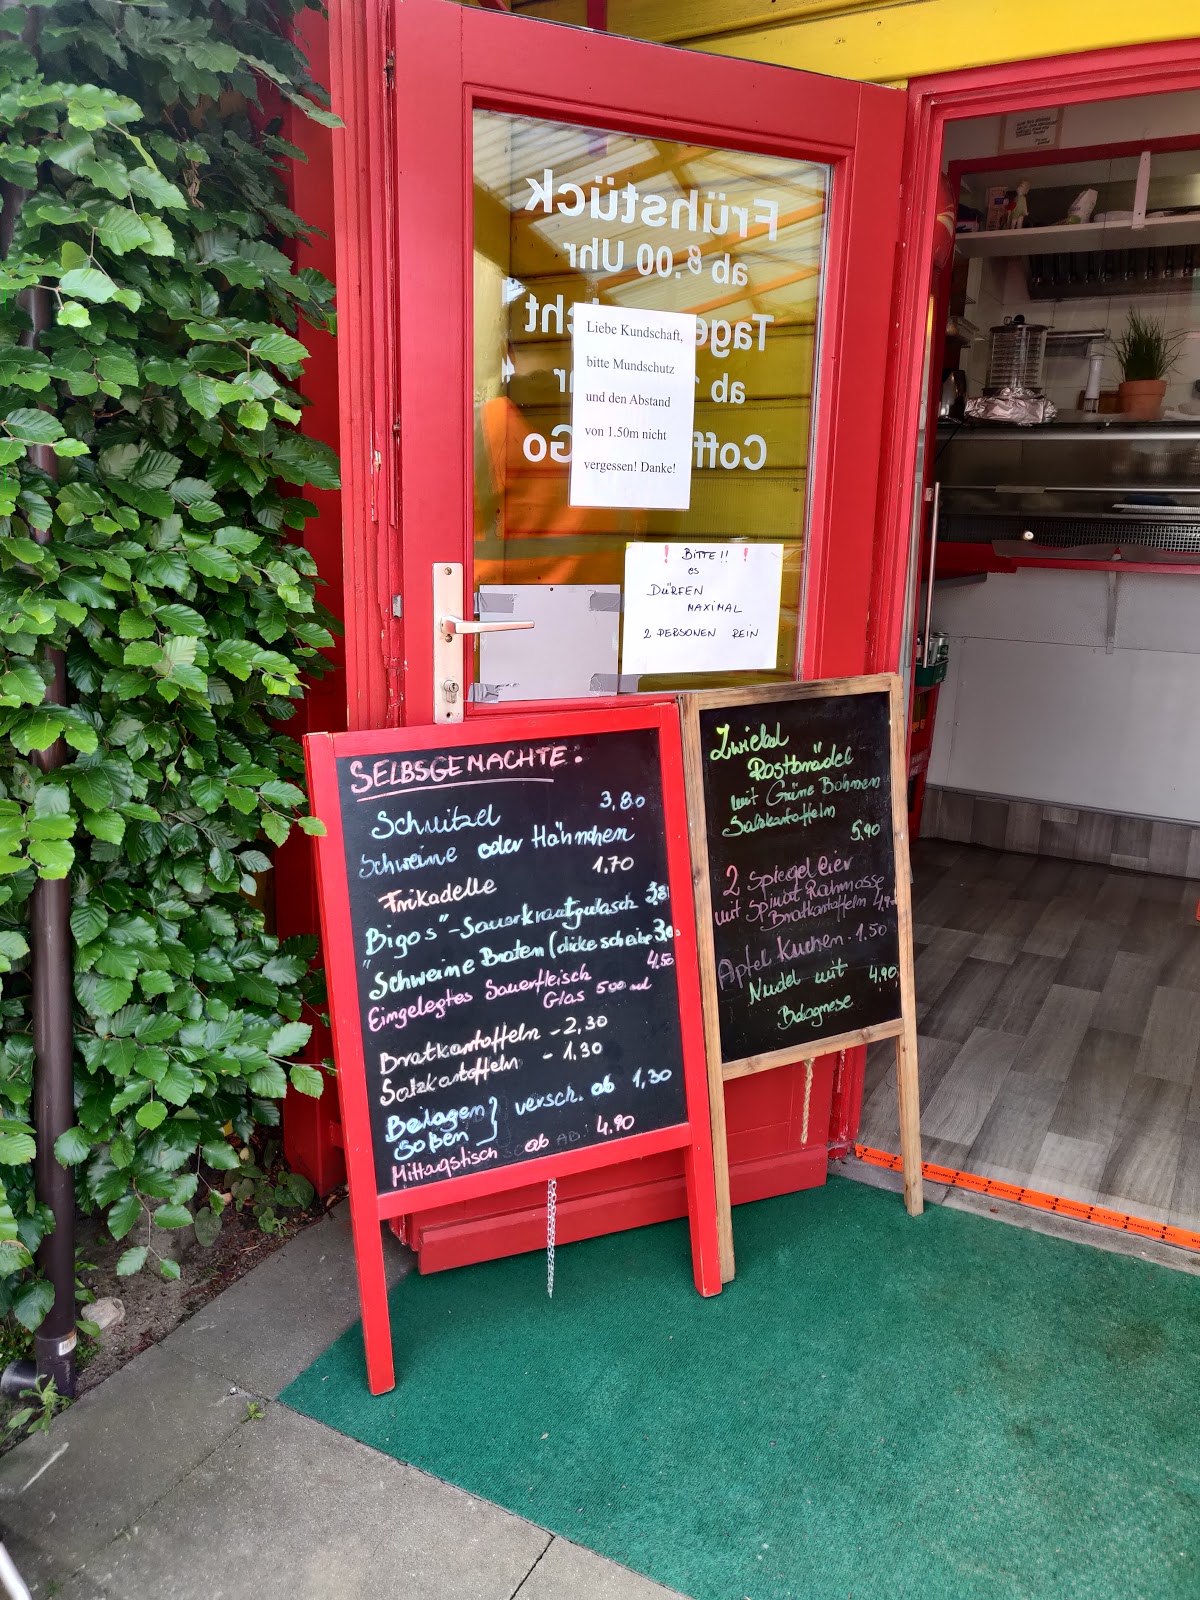 Frühstück
ab 8.00 Uhr
Liebe Kundschaft,
bitte Mundschutz
und den Abstand
von 1.50m nicht
vergessen! Danke!
! BITTE!! !
es
DÜRFEN
MAXIMAL
2 PERSONEN REIN
SELBSGEMACHTE:
Schnitzel 3,80
Schweine oder Hähnchen
Frikadelle 1,70
"Bigos"-Sauerkrautgulasch
"Schweine Braten (dicke scheibe
Eingelegtes Sauerfleisch 4.50
Glas 500 ml
Bratkartoffeln - 2,30
Salzkartoffeln - 1.30
Beilagen } versch. ab 1,30
Soßen
Mittagstisch ab 4.90
Zwiebel
Rostbrädel
mit Grüne Bohnen
Salzkartoffeln
5,90
2 Spiegel eier
mit Spinat Rahmsose
Bratkartoffeln
Apfel Kuchen - 1.50
Nudel mit 4,90
Bolognese